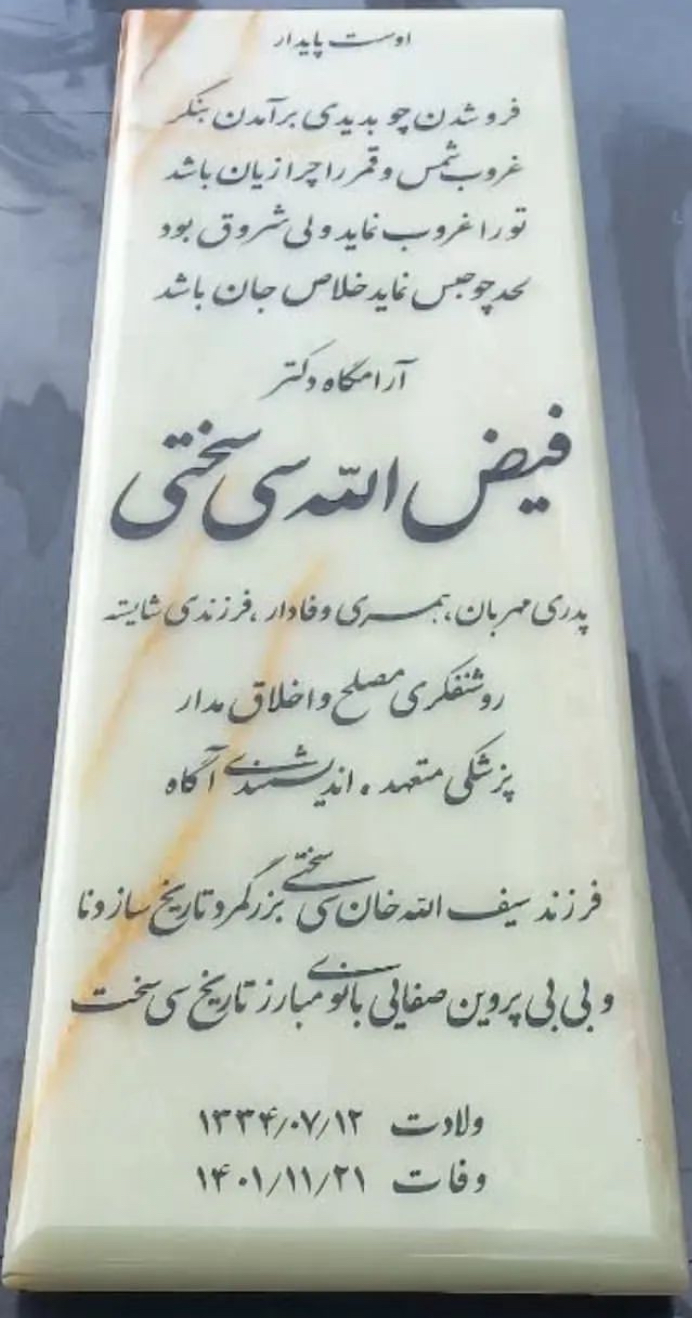 اوست پایدار
فرو شدن چو بدیدی برآمدن بنگر
غروب شمس و قمر را چرا زیان باشد
تو را غروب نماید ولی شروق بود
لحد چو حبس نماید خلاص جان باشد
آرامگاه دکتر
فیض الله سی سختی
پدری مهربان، همسری وفادار، فرزندی شایسته
روشنفکری مصلح و اخلاق مدار
پزشکی متعهد، اندیشمندی آگاه
فرزند سیف الله خان سی سختی بزرگمرد تاریخ ساز دنا
و بی بی پروین صفایی بانوی مبارز تاریخ سی سخت
ولادت ۱۳۳۴/۰۷/۱۲
وفات ۱۴۰۱/۱۱/۲۱